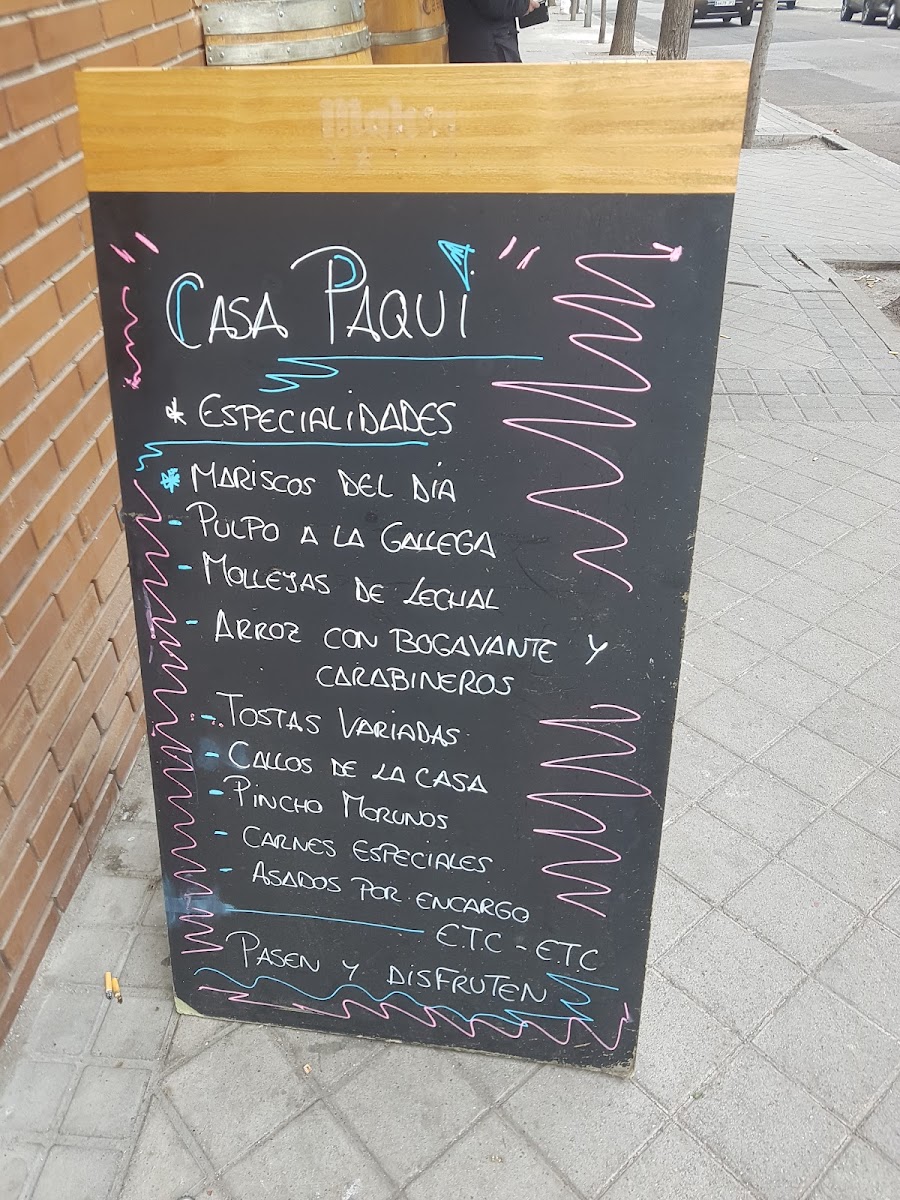 Mahou
" CASA PAQUI "
* ESPECIALIDADES
* MARISCOS DEL DÍA
- PULPO A LA GALLEGA
- MOLLEJAS DE LECHAL
- ARROZ CON BOGAVANTE Y
CARABINEROS
- TOSTAS VARIADAS
- CALLOS DE LA CASA
- PINCHO MORUNOS
- CARNES ESPECIALES
- ASADOS POR ENCARGO
E.T.C - E.T.C
PASEN Y DISFRUTEN